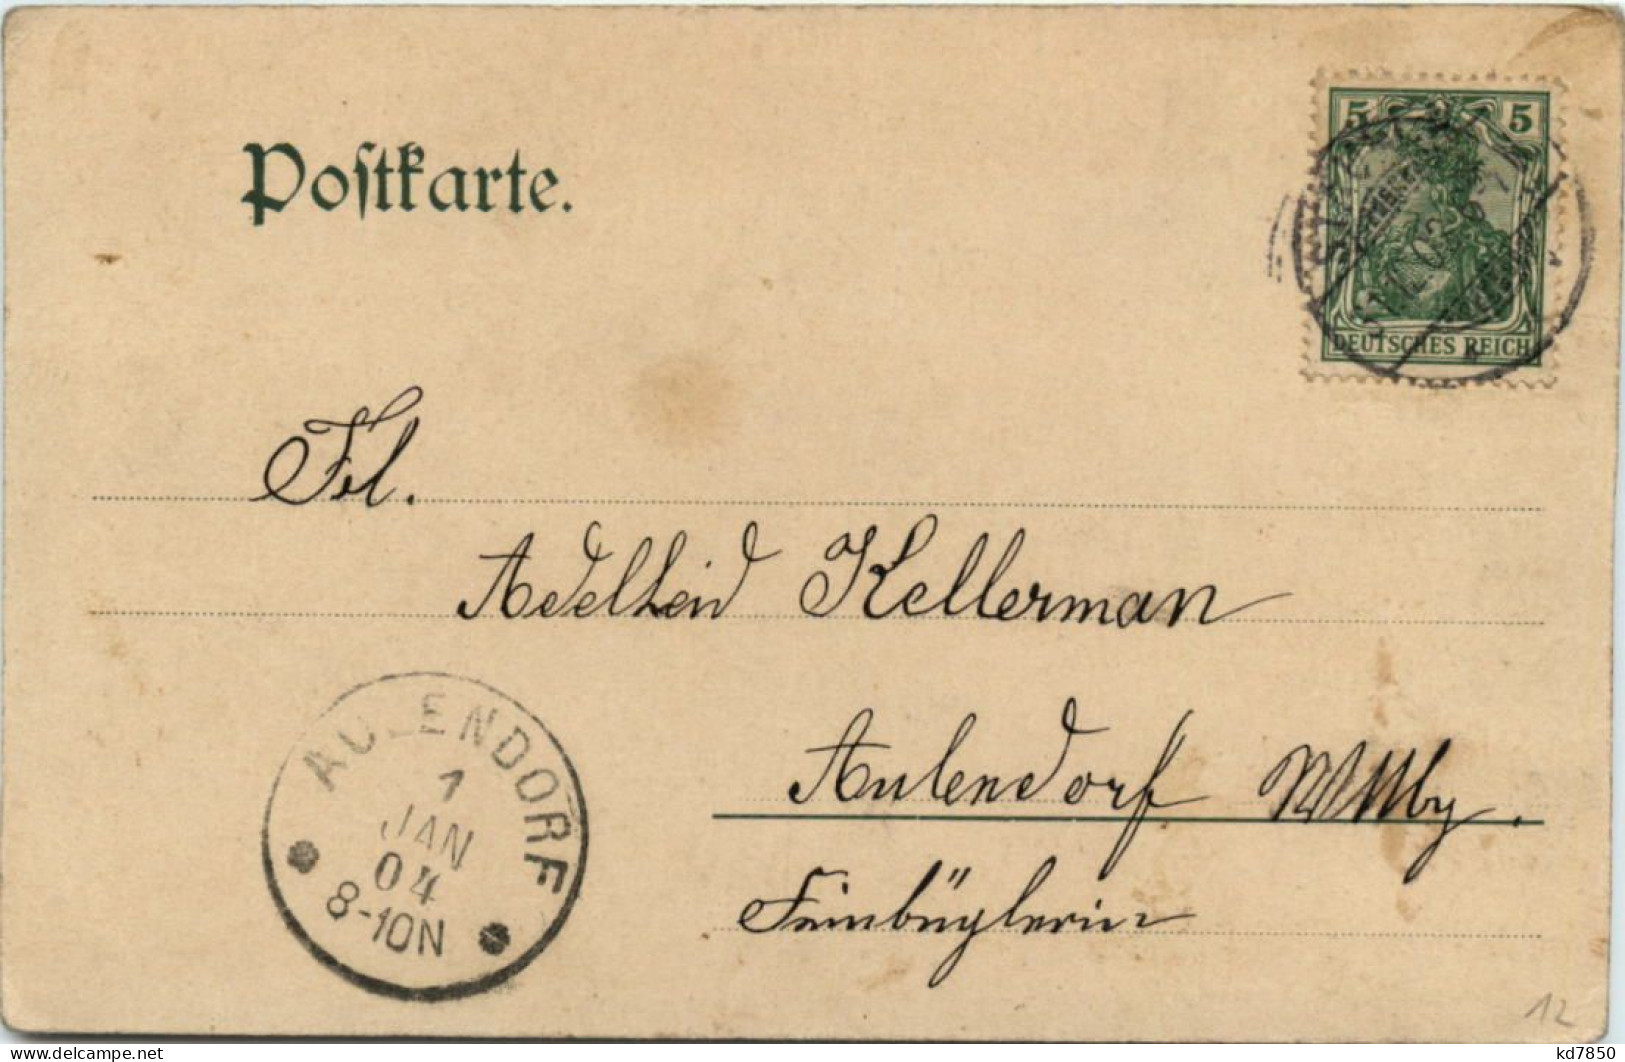 Postkarte.
5 5
DEUTSCHES REICH
Frl.
Adelheid Kellerman
Aulendorf Wttbg.
Feinbüglerin
AULENDORF
1
JAN
04
8-10N
12
kd7850